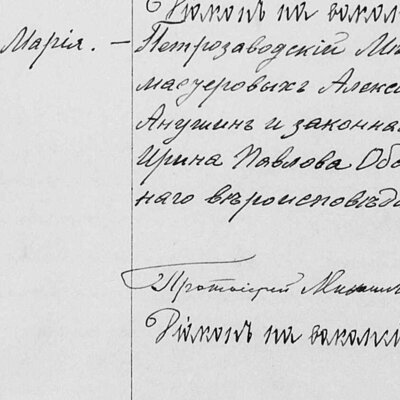 Діаконъ на вакан
Марія. — Петрозаводскій Мѣ
мастеровыхъ Алексѣ
Анушинъ и законна
Ирина Павлова Обо
наго вѣроисповѣда
Протоіерей Михаил
Діаконъ на ваканси